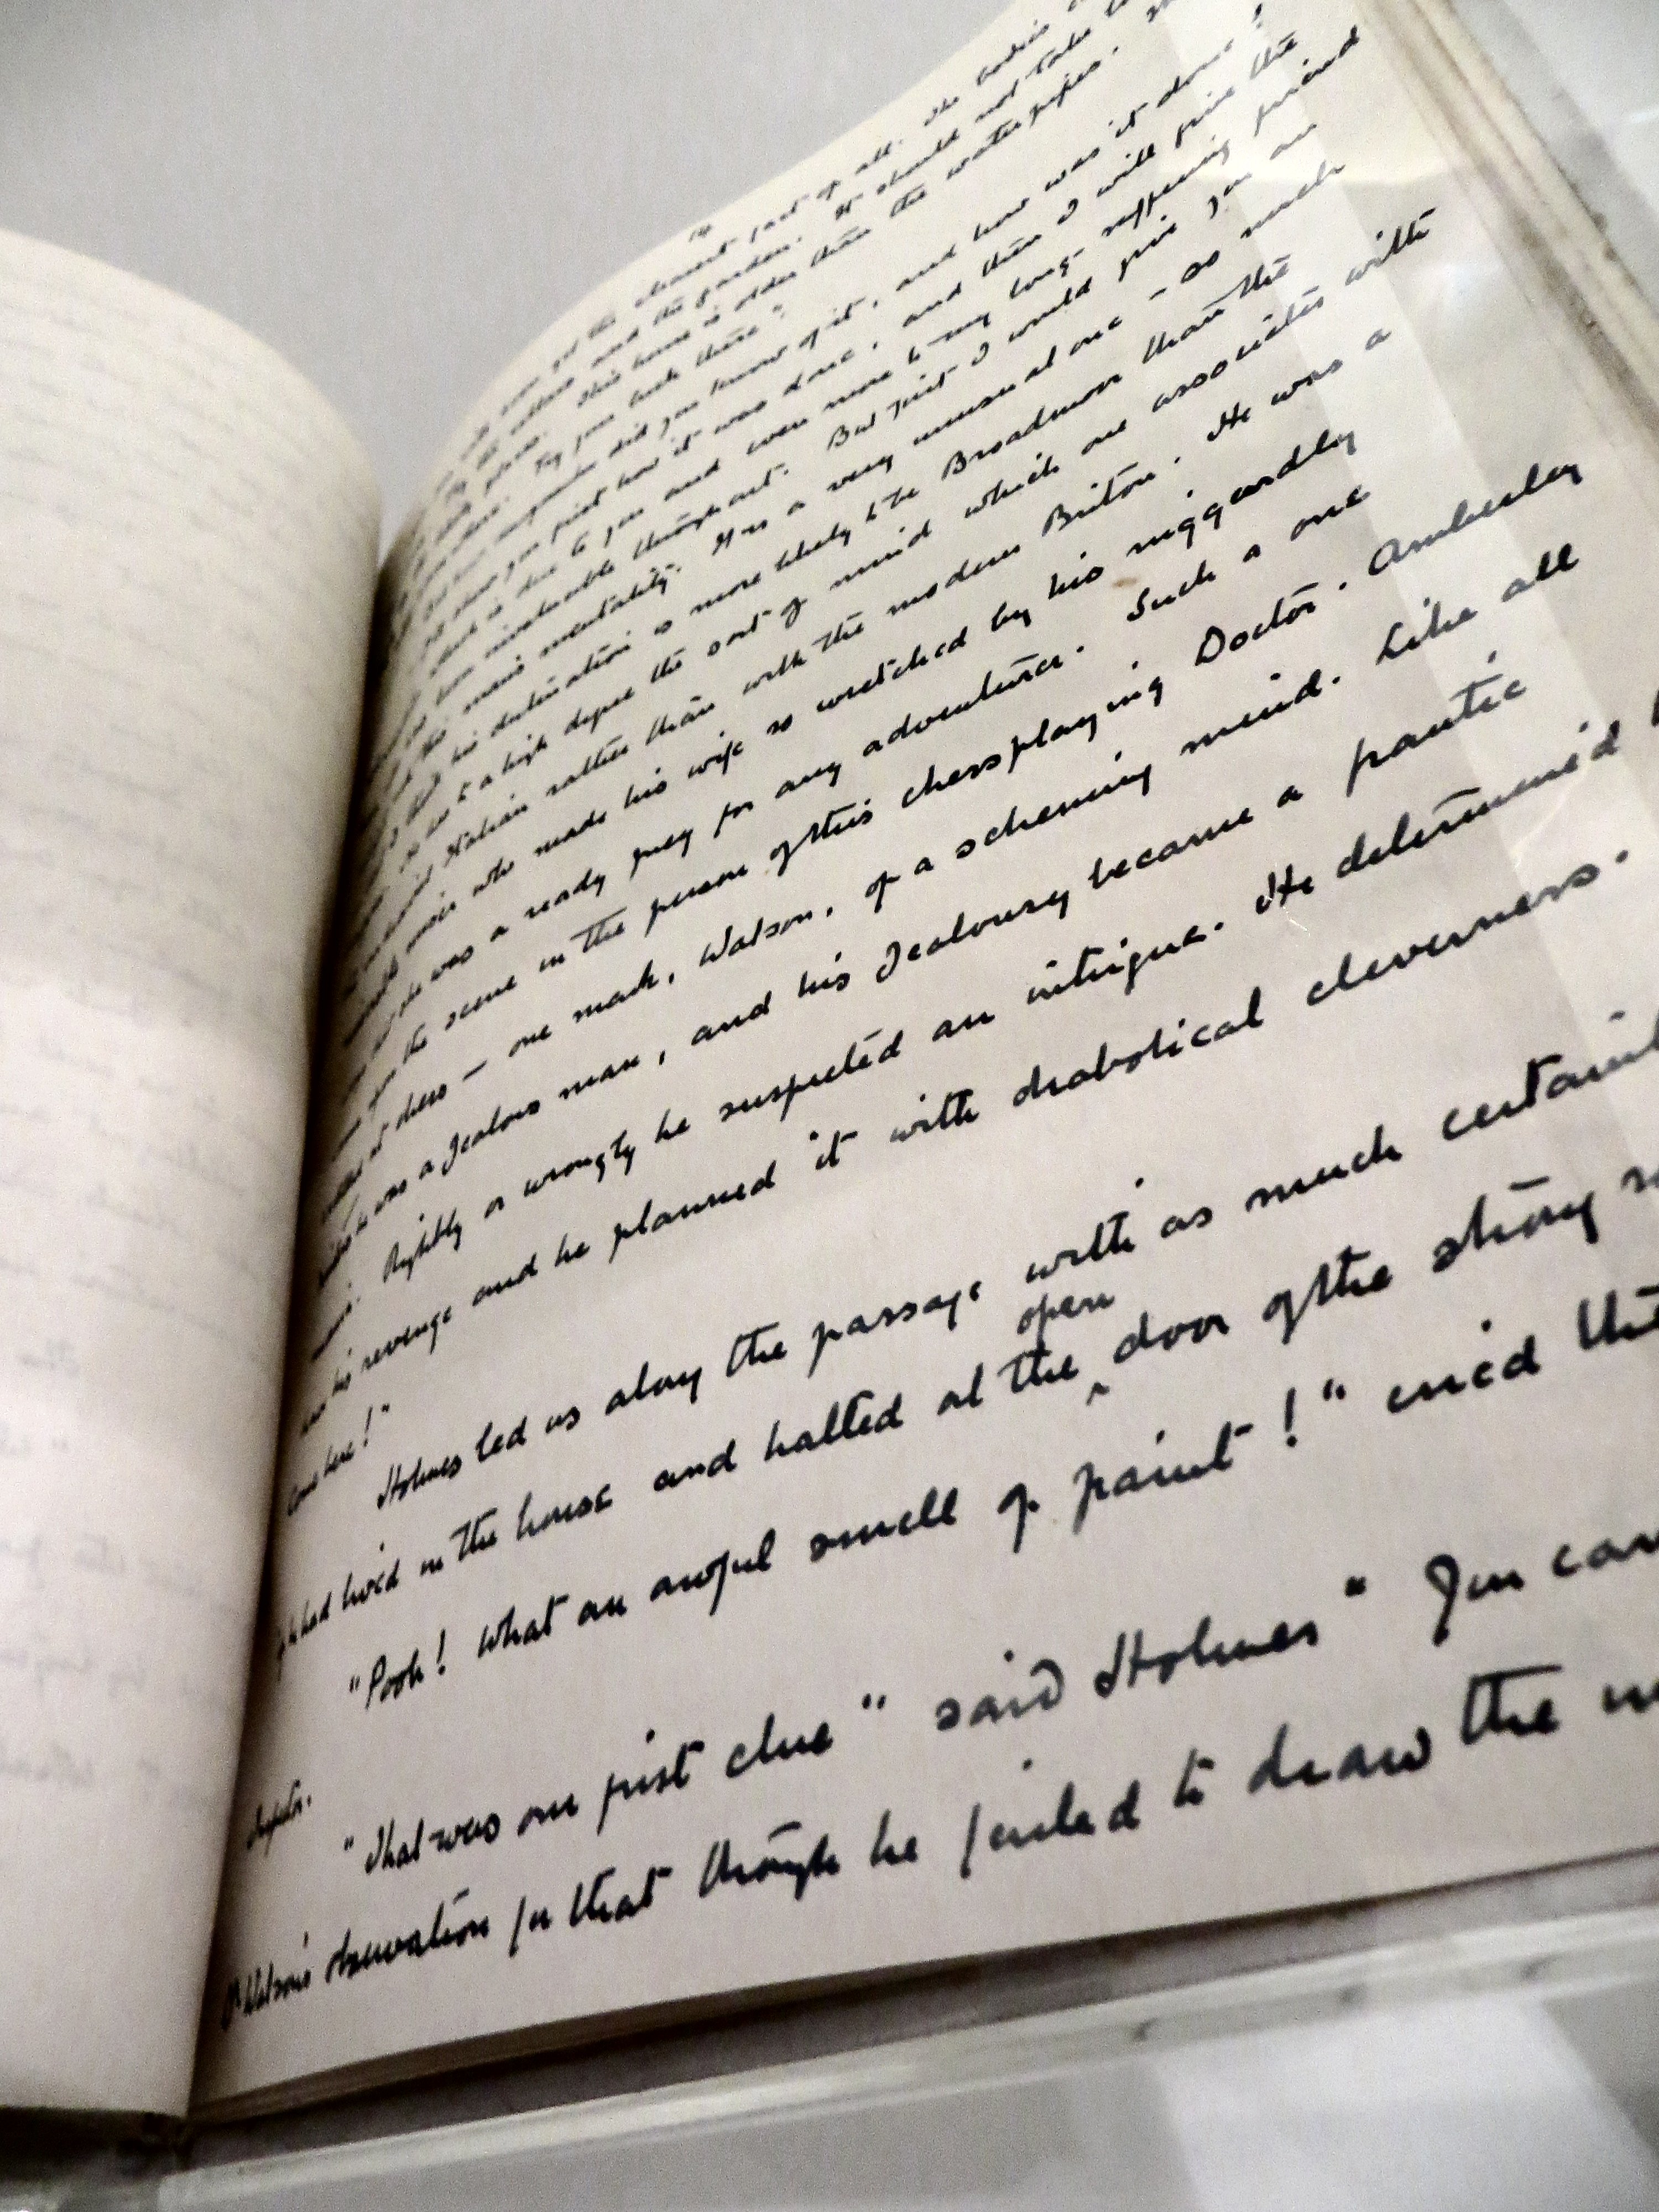 the cleverest part of all. The
and the garden. It should not take
This house is older than the water pipes.
Try your luck there."
did you know of it, and how was it done?"
you first how it was done, and then I will give the
is due to you and even more to my long suffering friend
been invaluable throughout. But first I would give you an
this man's mentality. It is a very unusual one – so much
that his destination is more likely to be Broadmoor than the
to a high degree the sort of mind which one associates with
Italian rather than with the modern Briton. He was a
miser who made his wife so wretched by his niggardly
she was a ready prey for any adventurer. Such a one
upon the scene in the person of this chessplaying Doctor. Amberley
at chess – one mark, Watson, of a scheming mind. Like all
he was a Jealous man, and his Jealousy became a frantic
Rightly or wrongly he suspected an intrigue. He determined
his revenge and he planned it with diabolical cleverness.
Come here!"
Holmes led us along the passage with as much
had lived in the house and halted at the open door of the strong
"Pooh! What an awful smell of paint!" cried the
Inspector.
"That was our first clue" said Holmes "You can
Dr Watson's observation for that though he failed to draw the